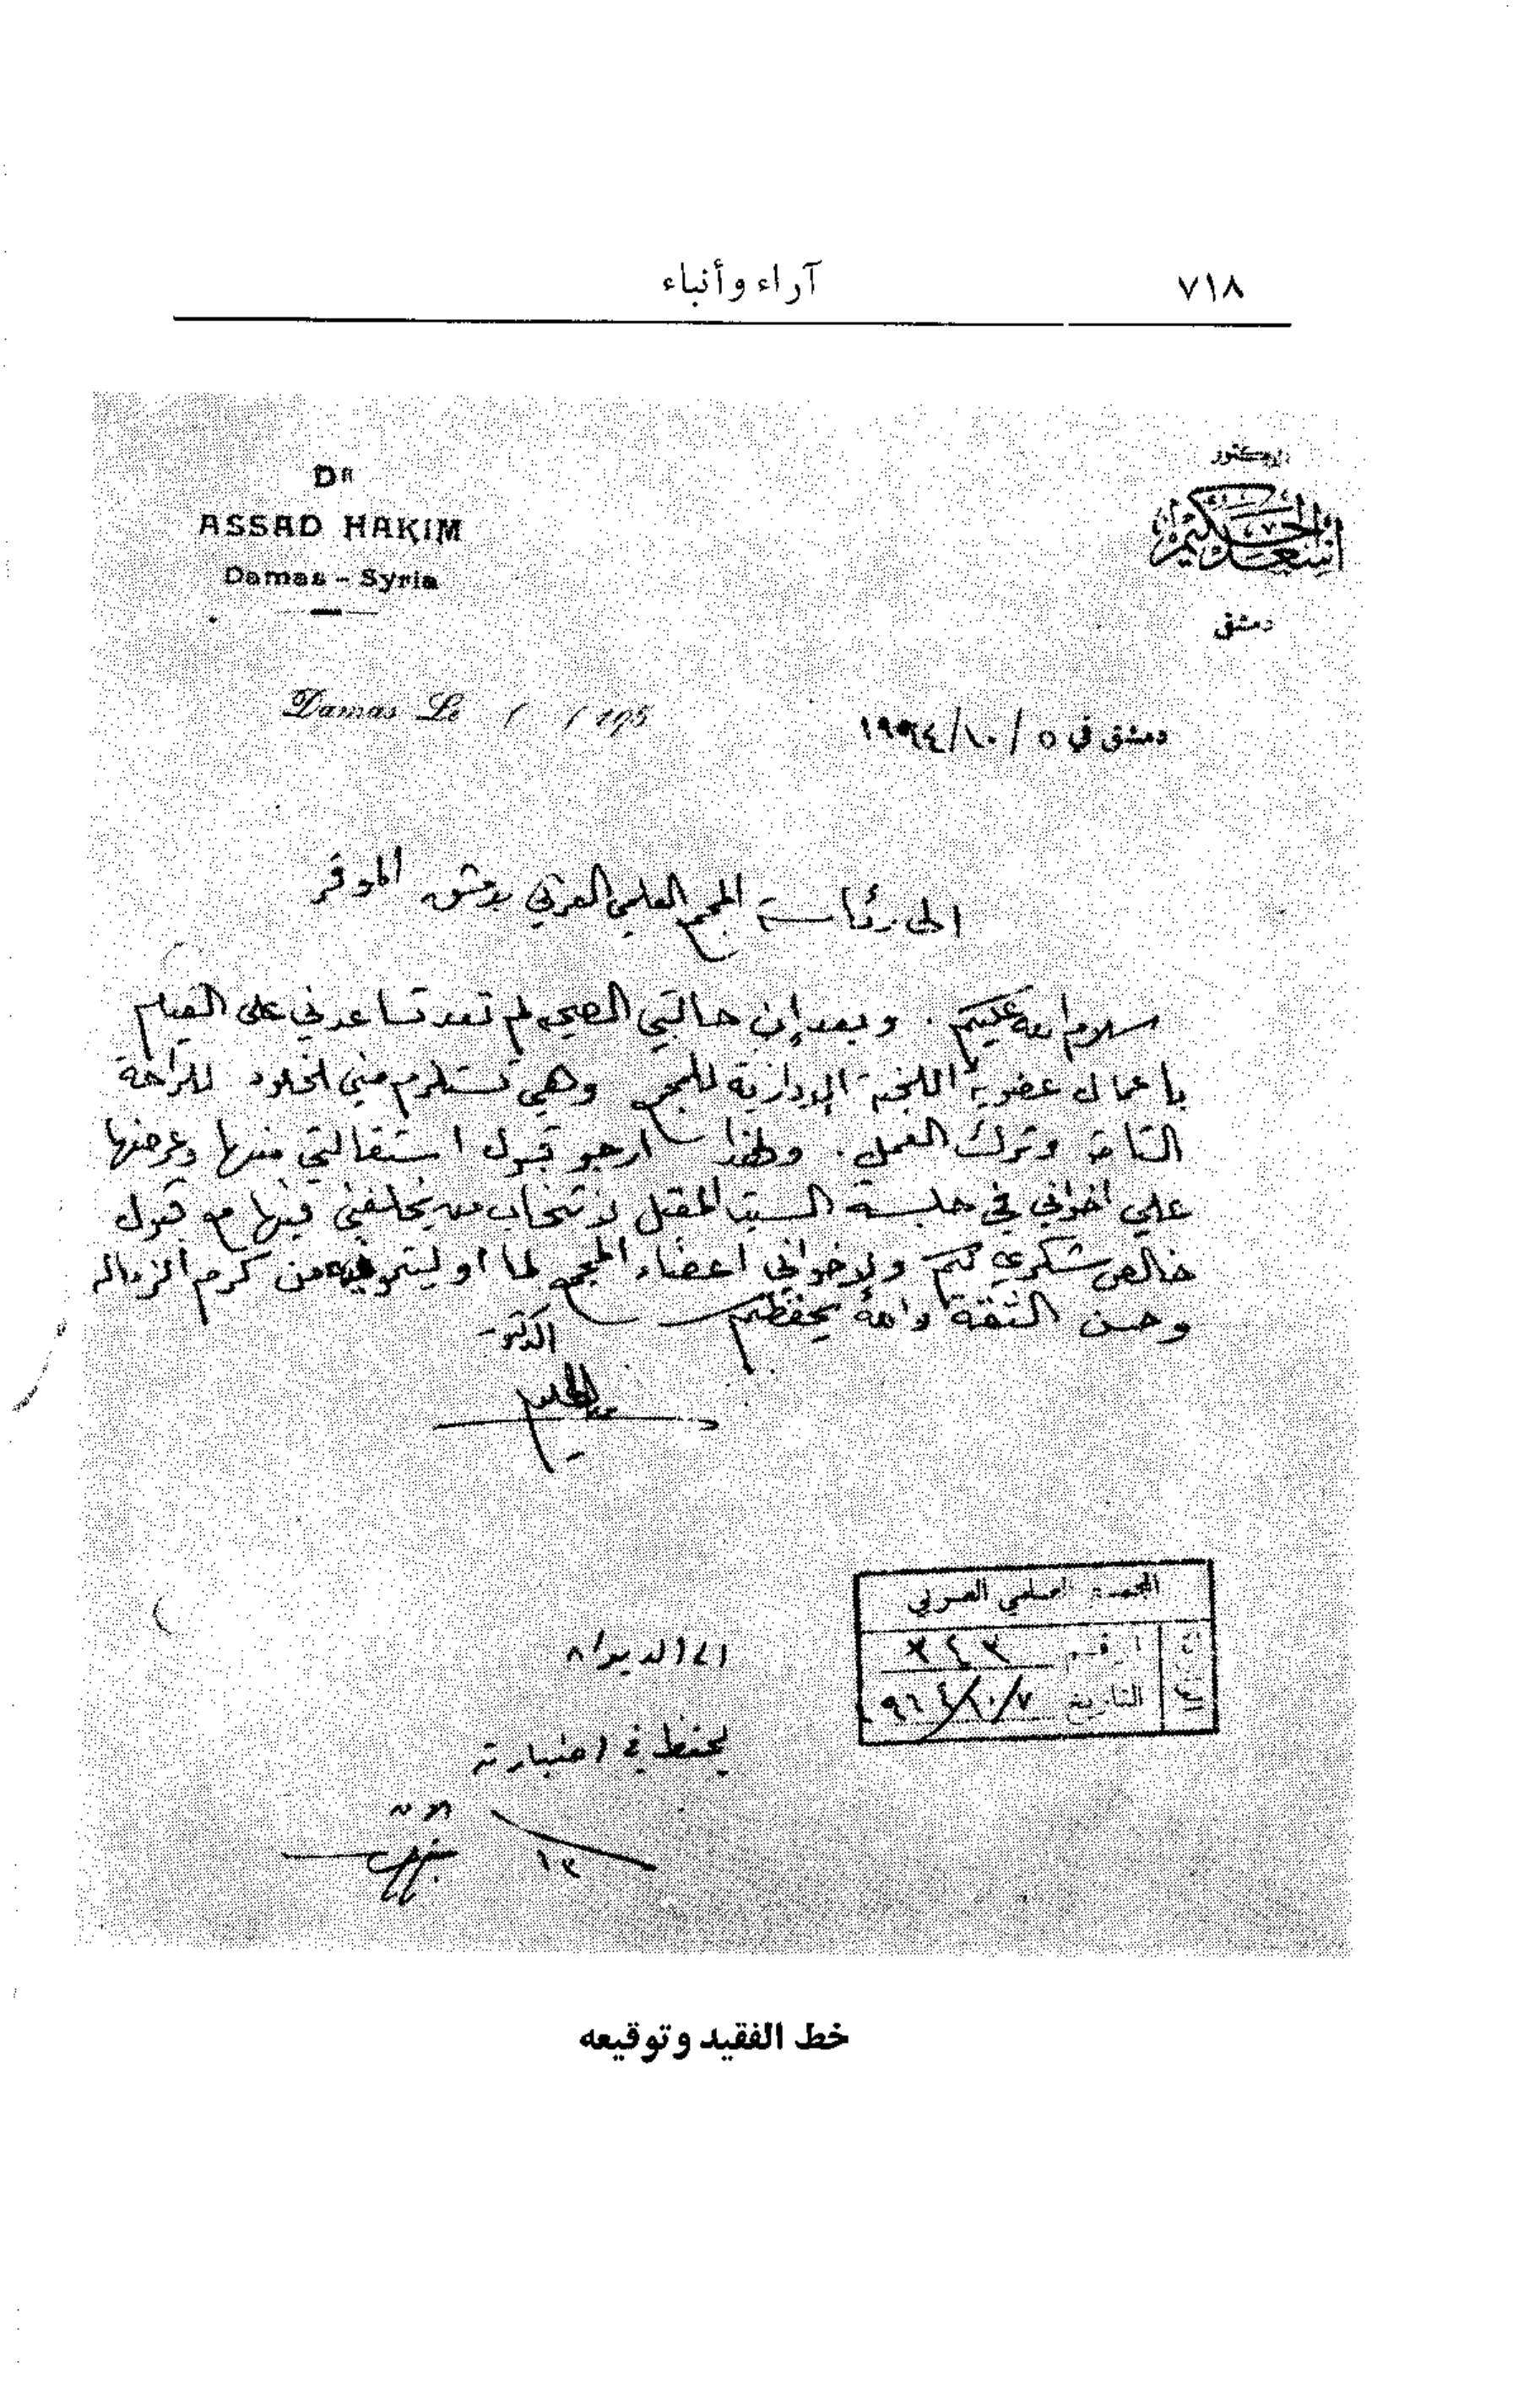 ٧١٨
آراء وأنباء
DR
ASSAD HAKIM
Damas - Syria
الدكتور
أسعد الحكيم
دمشق
Damas Le / / 195
دمشق في ٥ / ١٠ / ١٩٦٤
الى رئاسة المجمع العلمي العربي بدمشق الموقر
سلام الله عليكم . وبعد إن حالتي الصحية لم تعد تساعدني على القيام
بأعمال عضوية اللجنة الإدارية للمجمع وهي تستلزم مني الخلود للراحة
التامة وترك العمل . ولهذا أرجو قبول استقالتي منها وعرضها
على اخواني في جلسة السبت المقبل لانتخاب من يخلفني فيها مع قبول
خالص شكري لكم ولإخواني أعضاء المجمع لما أوليتمونيه من كرم الزمالة
وحسن الثقة والله يحفظكم
الدكتور
المجمع العلمي العربي
الرقم ٣٤٣
التاريخ ٧/١٠/٩٦٤
الى الديوان
ليحفظ في اضبارته
خط الفقيد وتوقيعه